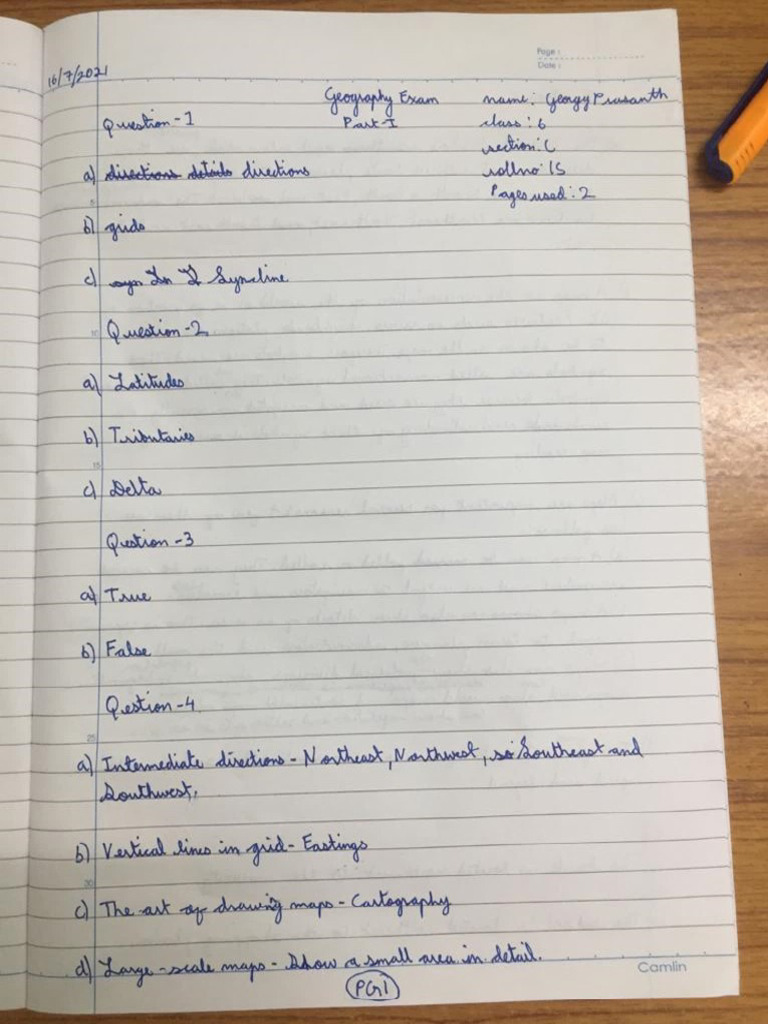 Page :
Date :
16/7/2021
Geography Exam
name: Georgy Prasanth
Question-1
Part-I
class: 6
section: C
a) directions details directions
rollno: 15
Pages used: 2
b) grids
c) syn In I Syncline
Question-2
a) Latitudes
b) Tributaries
c) Delta
Qestion-3
a) True
b) False
Qestion-4
a) Intermediate directions - Northeast, Northwest, so Southeast and
Southwest.
b) Vertical lines in grid - Eastings
c) The art of drawing maps - Cartography
d) Large-scale maps - Show a small area in detail.
Camlin
PG1